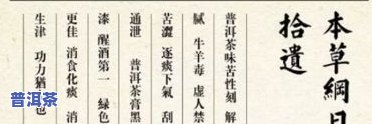 本草綱目
拾遺
普洱茶味苦性刻 解
膩 牛羊毒 虛人禁
苦澀 逐痰下氣 刮
通泄 普洱茶膏黑
漆 醒酒第一 綠色
更佳 消食化痰 消
生津 功力猶也
普洱茶